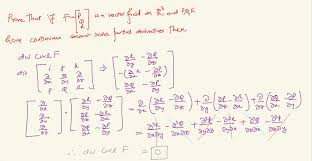 Prove that if F = [P Q R] is a vector field on ℝ³ and P,Q,R
have continuous second order partial derivatives Then
div curl F
div | i j k ; ∂/∂x ∂/∂y ∂/∂z ; P Q R | ⇒ [ ∂R/∂y − ∂Q/∂z ; −(∂R/∂x − ∂P/∂z) ; ∂Q/∂x − ∂P/∂y ]
[ ∂/∂x ; ∂/∂y ; ∂/∂z ] · [ ∂R/∂y − ∂Q/∂z ; ∂P/∂z − ∂R/∂x ; ∂Q/∂x − ∂P/∂y ] = ∂/∂x (∂R/∂y − ∂Q/∂z) + ∂/∂y (∂P/∂z − ∂R/∂x) + ∂/∂z (∂Q/∂x − ∂P/∂y)
∴ div curl F = 0